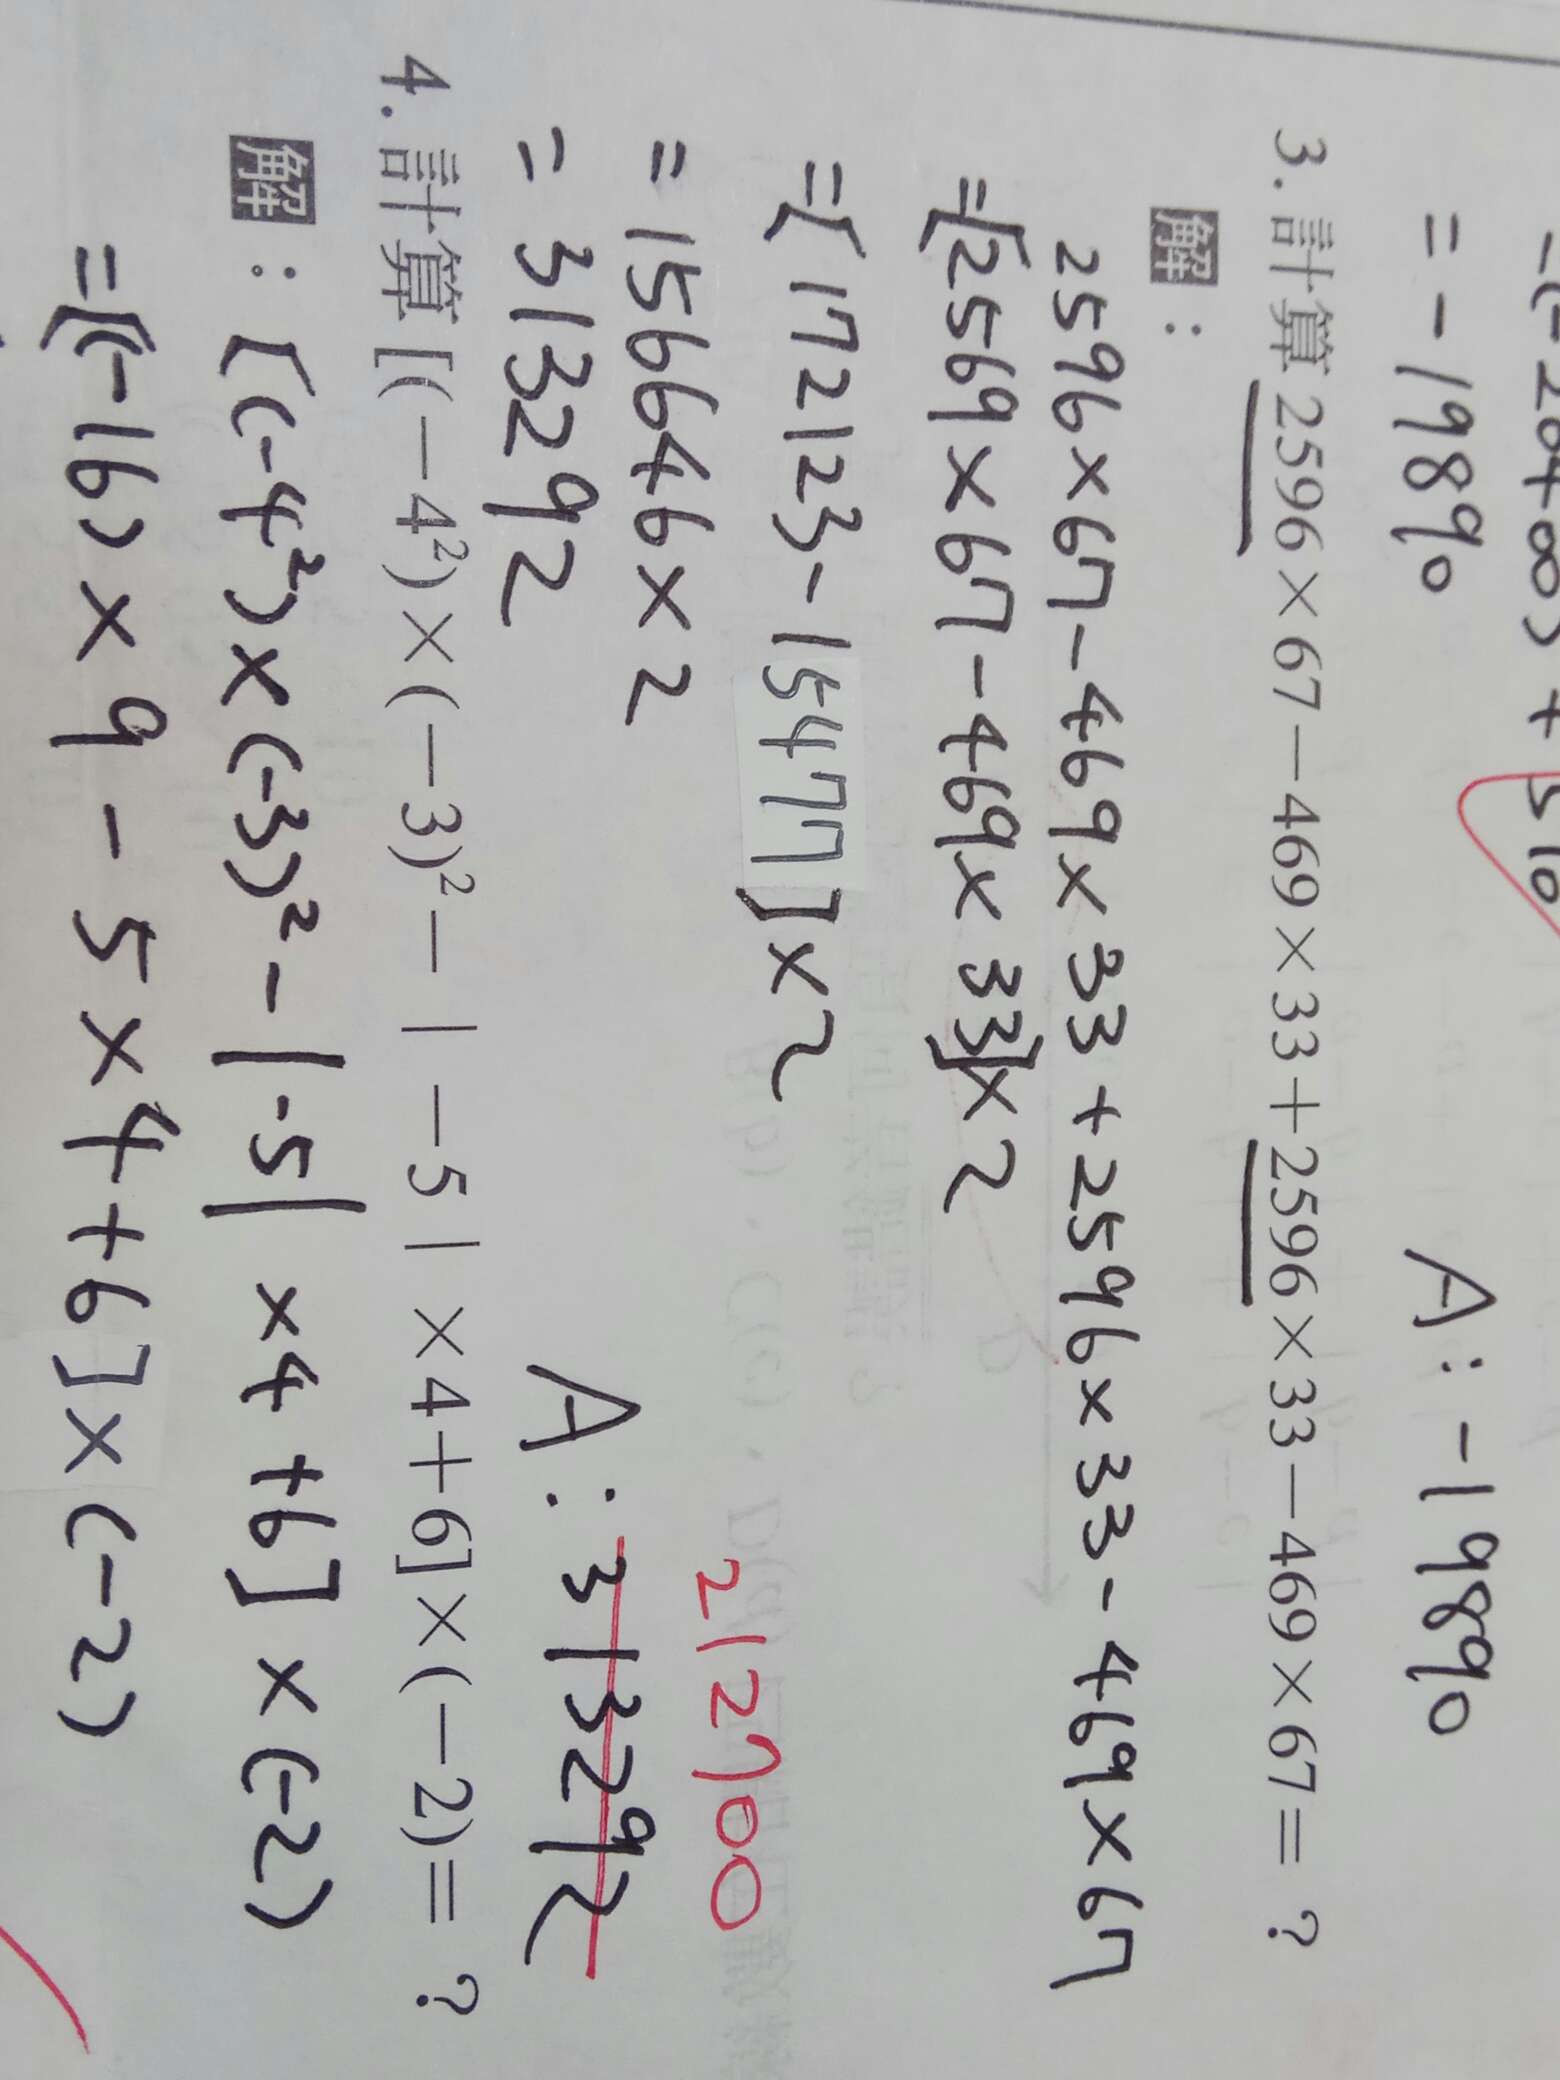 -(-204+8) + 510
= -1989
A: -1989
3. 計算 2596×67－469×33＋2596×33－469×67＝？
解：
2596×67-469×33+2596×33-469×67
=[2569×67-469×33]×2
=[172123-15477]×2
=156646×2
=313292
212700
A: 313292
4. 計算 [(－4²)×(－3)²－|－5|×4＋6]×(－2)＝？
解：[(-4²)×(-3)²-|-5|×4+6]×(-2)
=[(-16)×9-5×4+6]×(-2)